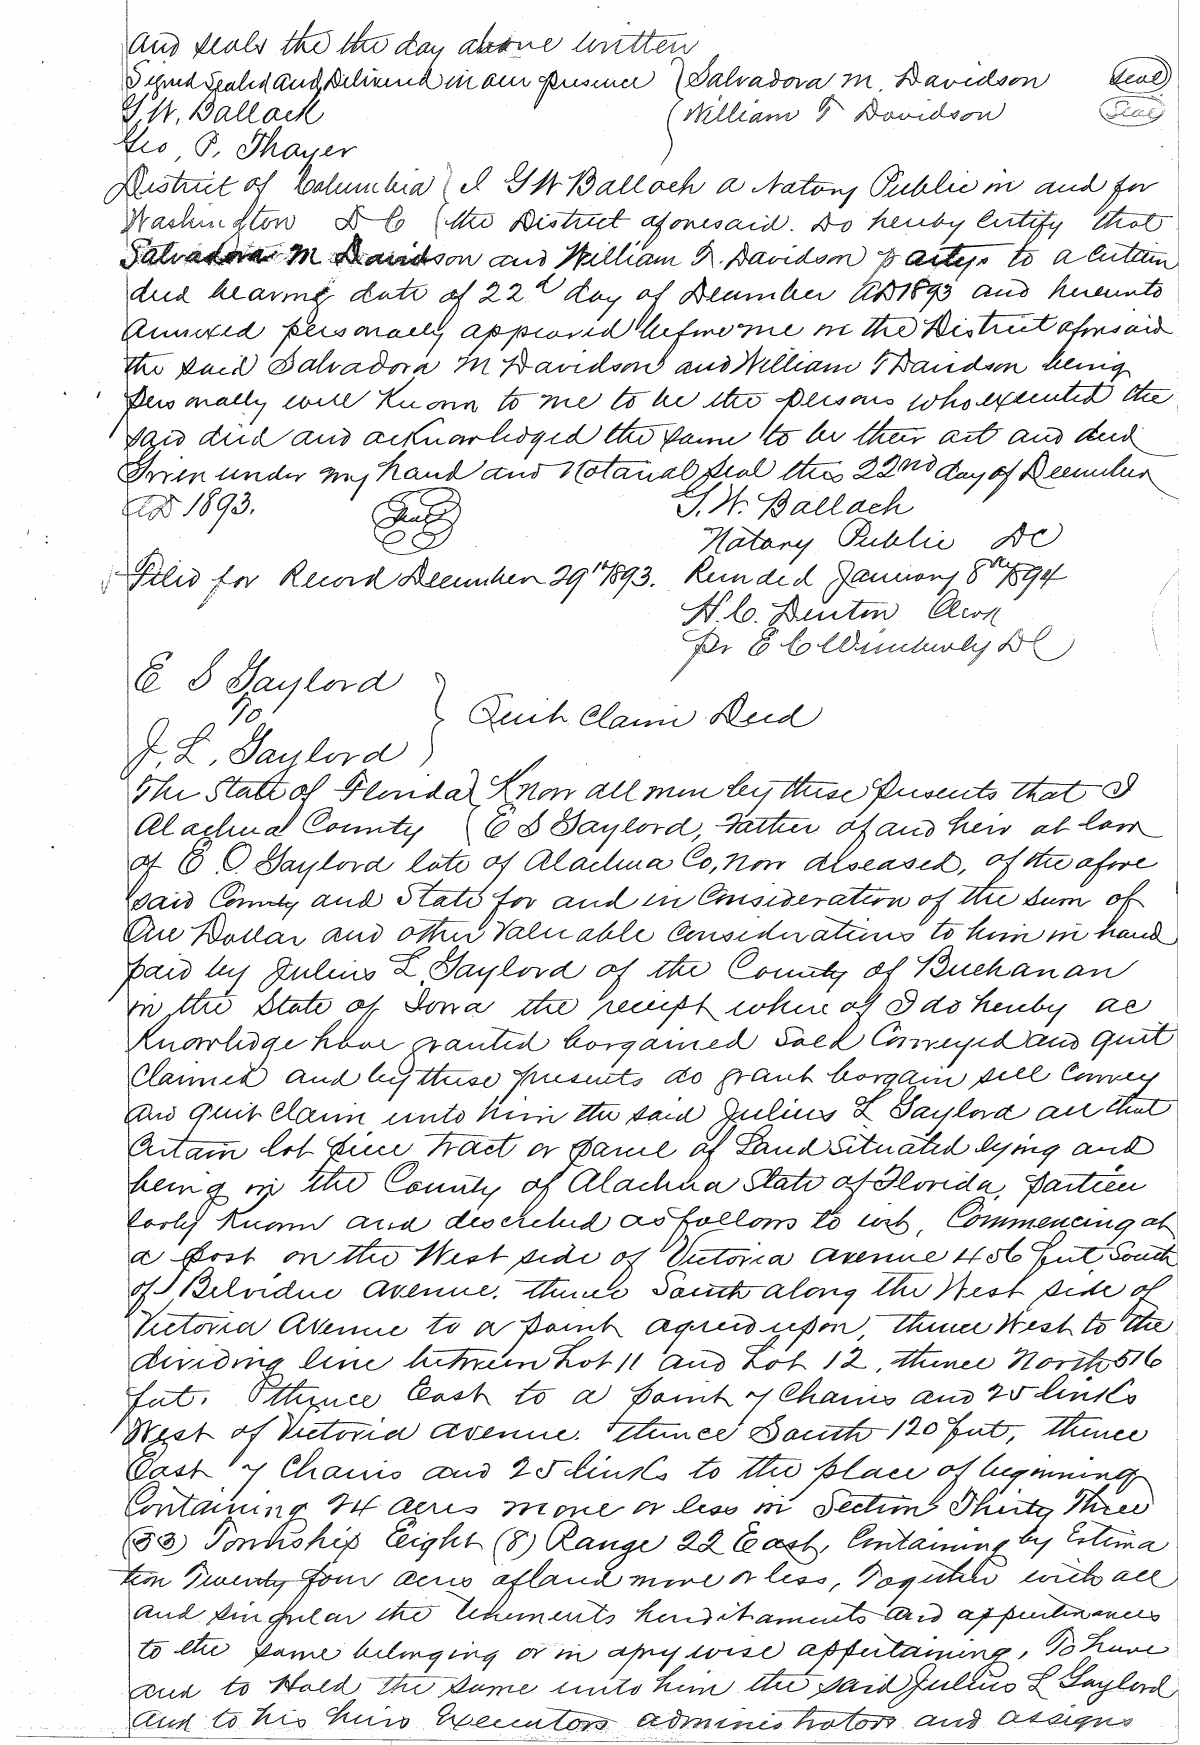 and seals the the day above written
Signed Sealed and Delivered in our presence Salvadora M. Davidson Seal
G. W. Ballach William T Davidson Seal
Geo, P. Thayer
District of Columbia I G W Ballach a Notary Public in and for
Washington D C the District aforesaid. Do hereby Certify that
Salvadora M Davidson and William T. Davidson partys to a Certain
deed bearing date of 22d day of December AD 1893 and hereunto
Annexed personally appeared before me in the District aforesaid
the said Salvadora M Davidson and William T Davidson being
personally well Known to me to be the persons who executed the
said deed and acknowledged the same to be their act and deed
Given under my hand and Notarial Seal this 22nd day of December
AD 1893. Seal G. W. Ballach
Notary Public DC
Filed for Record December 29th 1893. Recorded January 8th 1894
H. C. Denton Clerk
per E C Wimberly D C
E S Gaylord
To Quit Claim Deed
J. L. Gaylord
The State of Florida Know all men by these presents that I
Alachua County E S Gaylord, Father of and heir at law
of E. O. Gaylord late of Alachua Co, now diseased, of the afore
said County and State for and in Consideration of the sum of
One Dollar and other Valuable Considerations to him in hand
paid by Julius L. Gaylord of the County of Buchanan
in the State of Iowa the receipt where of I do hereby ac
Knowledge have granted bargained Sold Conveyed and quit
Claimed and by these presents do grant bargain sell Convey
and quit Claim unto him the said Julius L Gaylord all that
Certain lot piece tract or parcel of Land Situated lying and
being in the County of Alachua State of Florida, particu
larly Known and described as follows to wit, Commencing at
a post on the West side of Victoria Avenue 456 feet South
of Belvidue Avenue. thence South along the West side of
Victoria Avenue to a point agreed upon, thence West to the
dividing line between Lot 11 and Lot 12, thence North 576
feet. thence East to a point 7 Chains and 25 links
West of Victoria Avenue. thence South 120 feet, thence
East 7 Chains and 25 links to the place of beginning
Containing 24 acres more or less in Section Thirty Three
(33) Township Eight (8) Range 22 East, Containing by Estima
tion Twenty four acres of land more or less, Together with all
and singular the tenements hereditaments and appurtenances
to the same belonging or in any wise appertaining, To have
and to Hold the same unto him the said Julius L Gaylord
and to his heirs Executors administrators and assigns